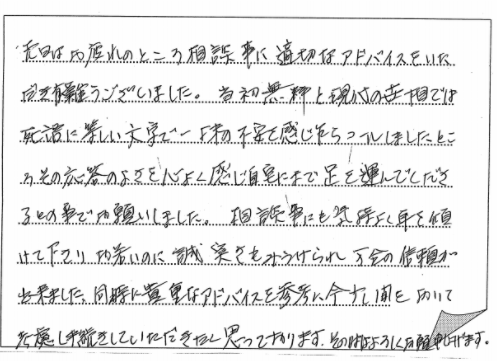 先日はお疲れのところ相談事に適切なアドバイスをいた
だき有難うございました。当初無料と現代の世相では
死語に等しい文字で一抹の不安を感じながらコールしましたとこ
ろその応答のよさを心よく感じ自宅にまで足を運んでくださ
るとの事でお願いしました。相談事にも気持よく耳を傾
けて下さりお若いのに誠実さもみうけられ万全の信頼が
出来ました。同時に貴重なアドバイスを参考に今少し間を
手続きしていただきたく思っております。その時はよろしくお願い申し上げます。